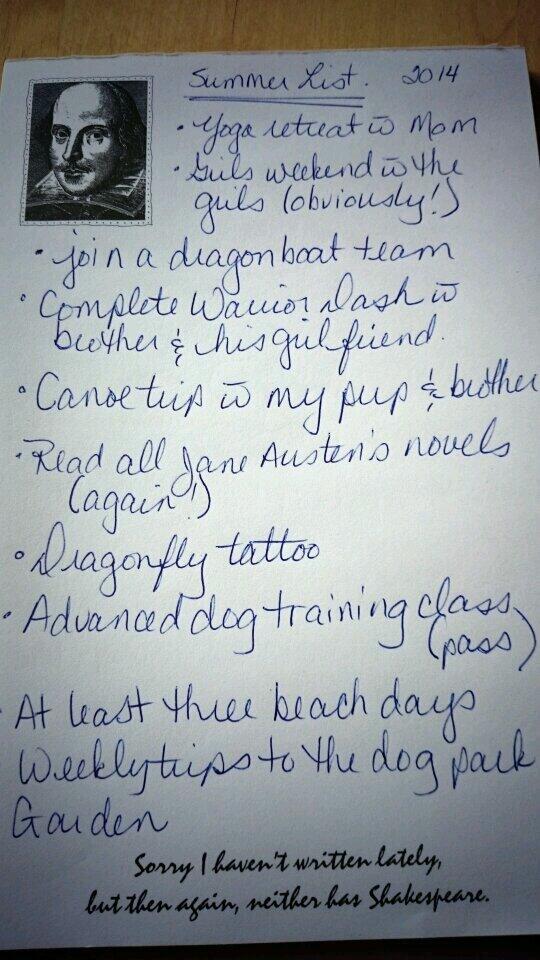 Summer List. 2014
• Yoga retreat w̄ Mom
• Girls weekend w̄ the
girls (obviously!)
• join a dragonboat team
• Complete Warrior Dash w̄
brother & his girlfriend.
• Canoe trip w̄ my pup & brother
• Read all Jane Austen's novels
(again!)
• Dragonfly tattoo
• Advanced dog training class
(pass)
At least three beach days
Weekly trips to the dog park
Garden
Sorry I haven't written lately,
but then again, neither has Shakespeare.